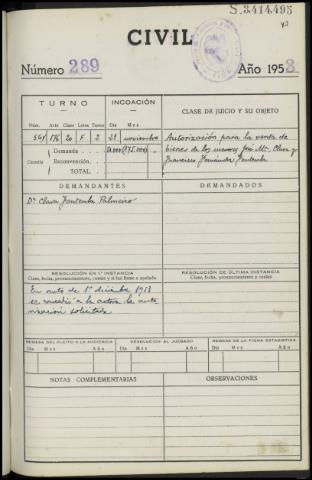 S.3414.495
CIVIL
Número 289 Año 1953
TURNO
INCOACIÓN
CLASE DE JUICIO Y SU OBJETO
Núm. Acta Clase Letra Turno Día Mes
176 20 F. 2 21 noviembre
Autorización para la venta de
bienes de los menores José Mª, Clara y
Francisco Fernández Fontenla
Cuantía
Demanda
Reconvención
TOTAL
DEMANDANTES
DEMANDADOS
Dª Clara Fontenla Palmeiro
RESOLUCIÓN EN 1ª INSTANCIA
Clase, fecha, pronunciamiento, costas y si fué firme o apelada.
RESOLUCIÓN DE ÚLTIMA INSTANCIA
Clase, fecha, pronunciamiento y costas
En auto de 1º diciembre 1953
se concedió a la actora la auto
rización solicitada
REMESA DEL PLEITO A LA AUDIENCIA
DEVOLUCIÓN AL JUZGADO
REMESA DE LA FICHA ESTADÍSTICA
Día Mes Año
Día Mes Año
Día Mes Año
NOTAS COMPLEMENTARIAS
OBSERVACIONES